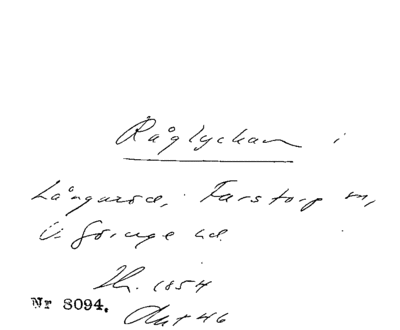 Råglyckan i
Långaröd, Farstorp sn,
V. Göinge hd.
Th. 1854
Nr 8094. Akt 46